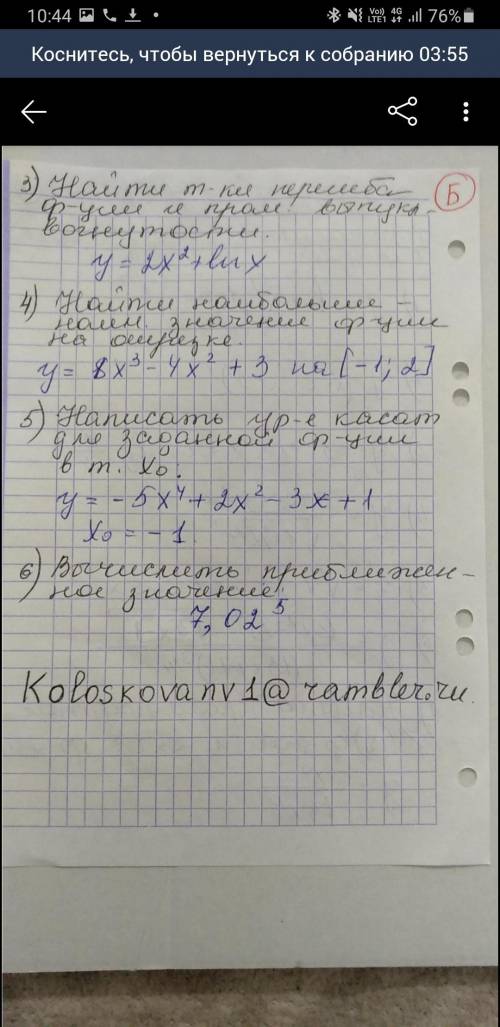 10:44 Vo)) LTE1 4G 76%
Коснитесь, чтобы вернуться к собранию 03:55
Б
3) Найти т-ки перегиба
ф-ции и пром. выпукл.
вогнутости.
y = 2x² + ln x
4) Найти наибольшее -
наим. значение ф-ции
на отрезке.
y = 8x³ - 4x² + 3 на [-1; 2]
5) Написать ур-е касат
для заданной ф-ции
в т. x₀.
y = -5x⁴ + 2x² - 3x + 1
x₀ = -1
6) Вычислить приближен-
ное значение:
7,02⁵
Koloskovanv1@rambler.ru.